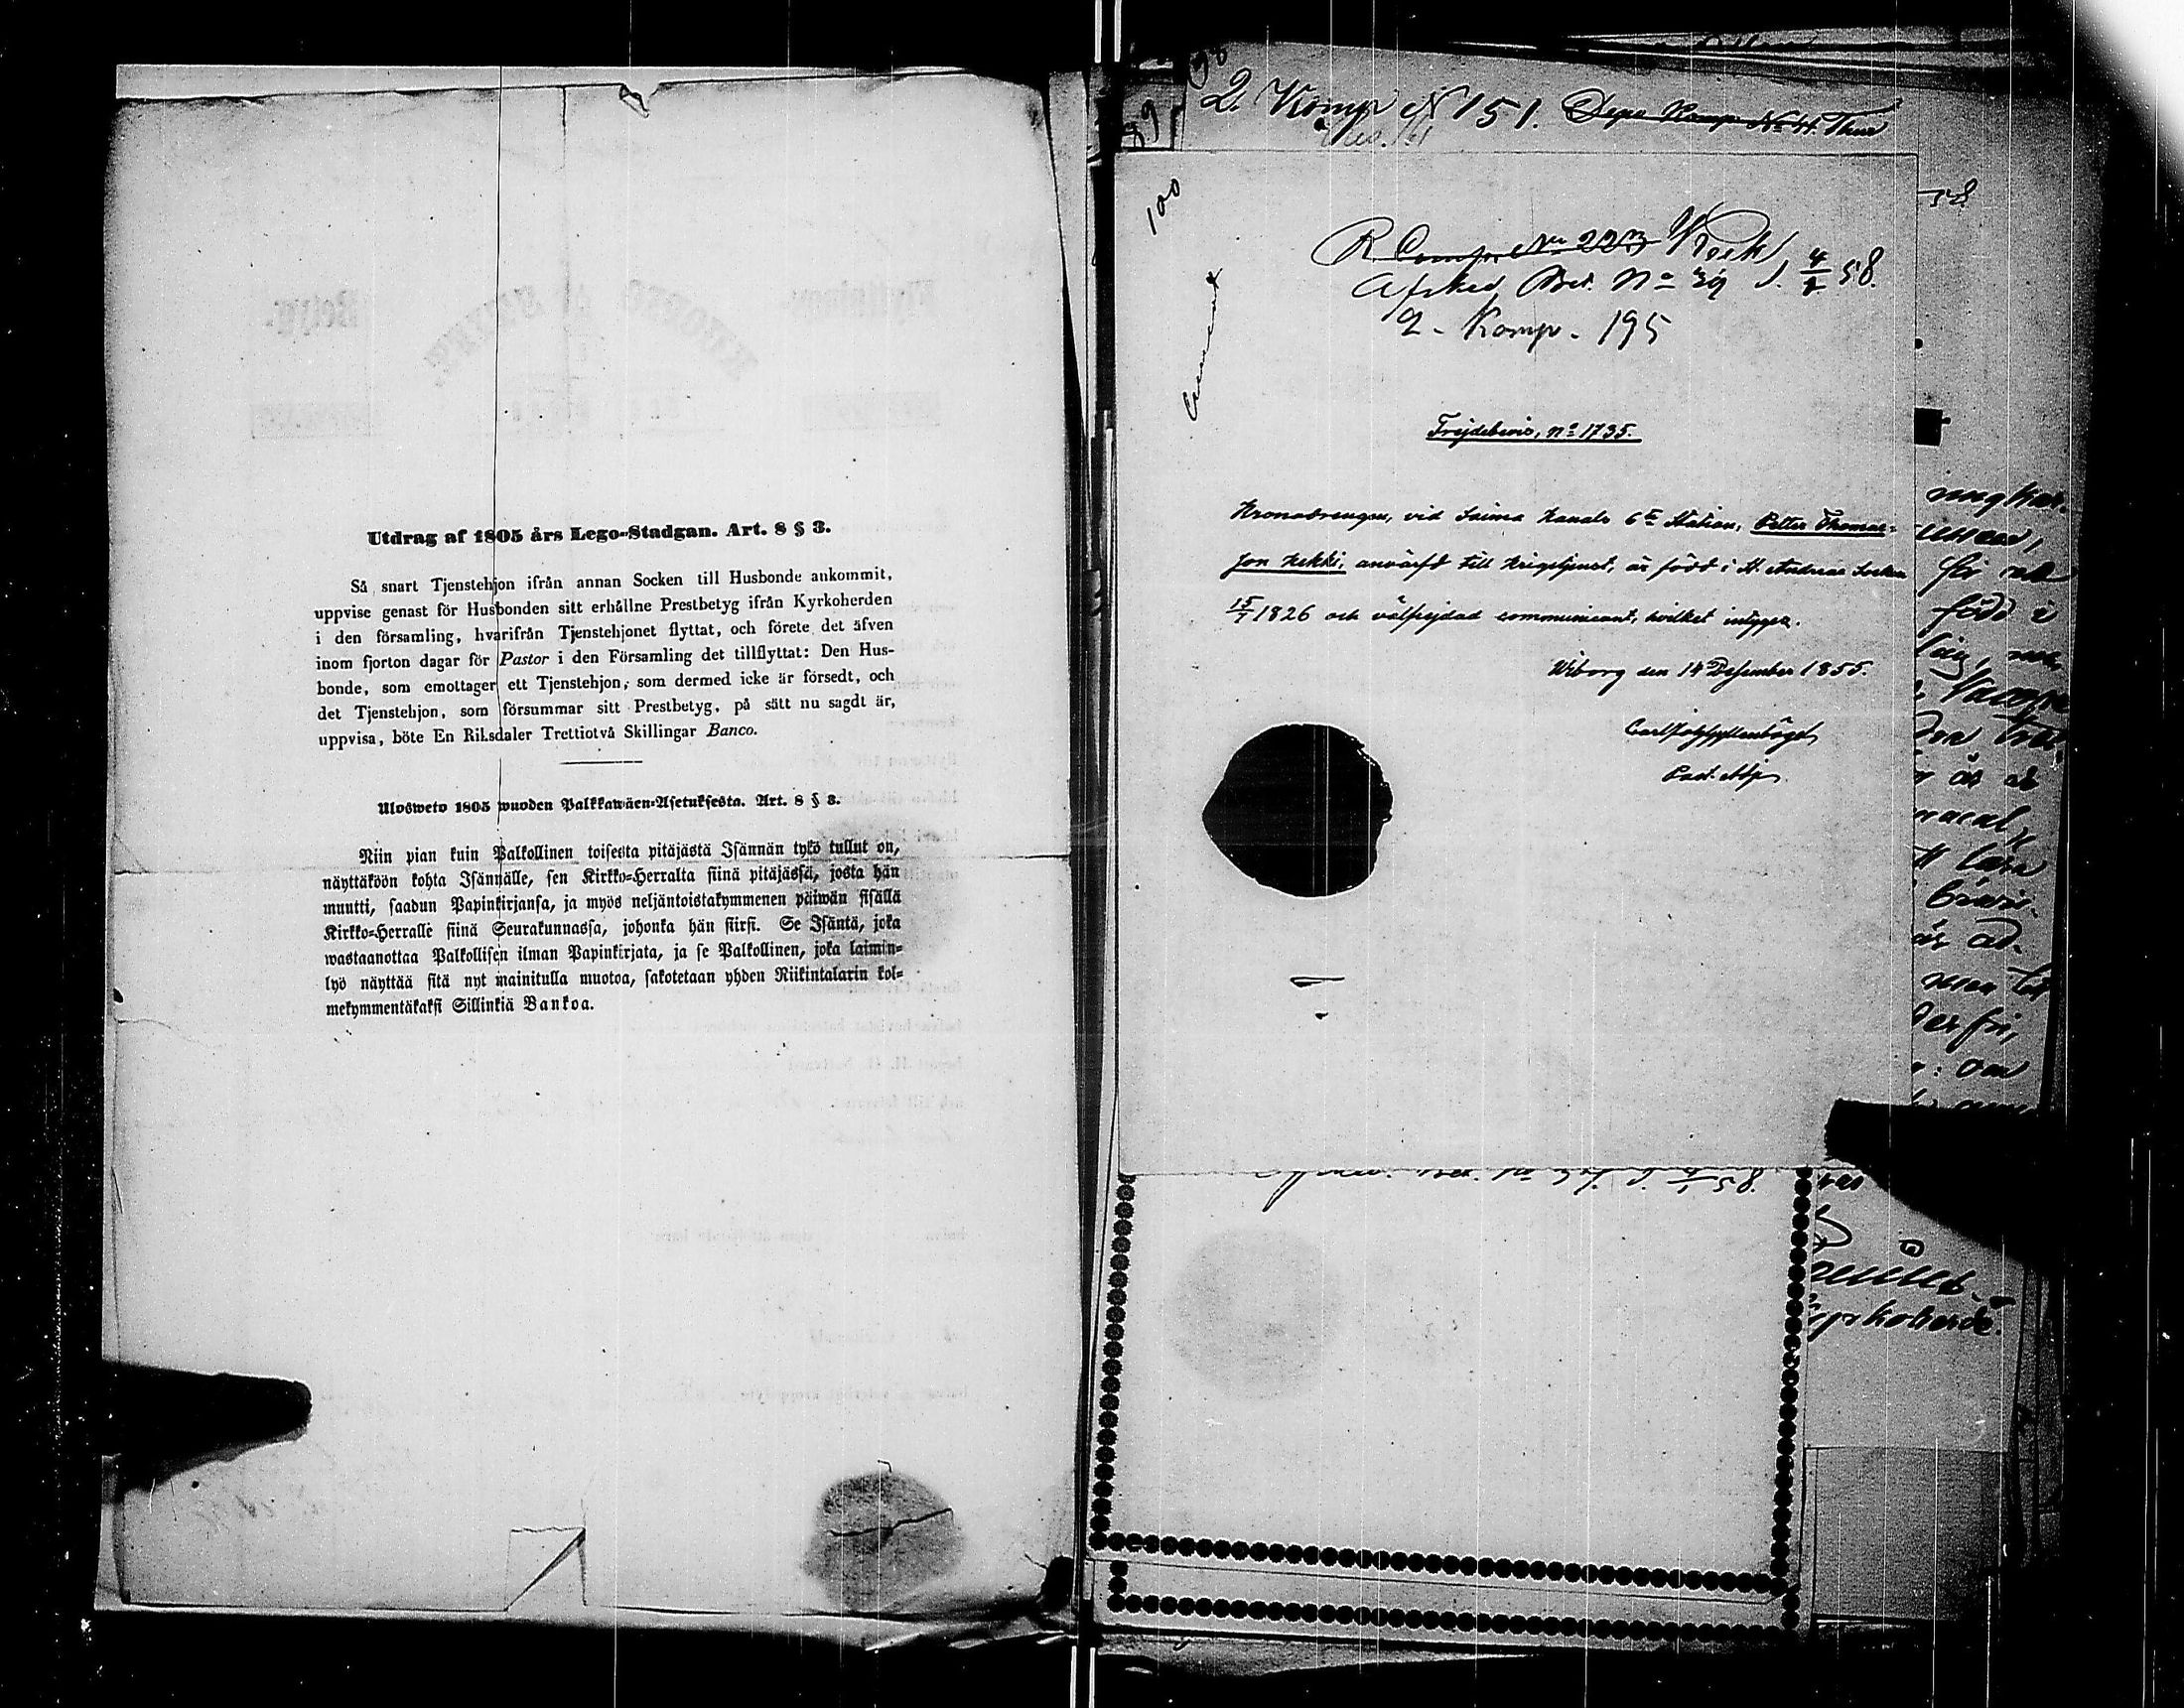 Utdrag af 1805 års Lego-Stadgan. Art. 8 § 3.
Så snart Tjenstehjon ifrån annan Socken till Husbonde ankommit,
uppvise genast för Husbonden sitt erhållne Prestbetyg ifrån Kyrkoherden
i den församling, hvarifrån Tjenstehjonet flyttat, och förete det äfven
inom fjorton dagar för Pastor i den Församling det tillflyttat: Den Hus-
bonde, som emottager ett Tjenstehjon, som dermed icke är försedt, och
det Tjenstehjon, som försummar sitt Prestbetyg, på sätt nu sagdt är,
uppvisa, böte En Riksdaler Trettiotvå Skillingar Banco.
Ulosweto 1805 wuoden Palkkawäen-Asetuksesta. Art. 8 § 3.
Niin pian kuin Palkollinen toisesta pitäjästä Isännän tykö tullut on,
näyttäköön kohta Isännälle, sen Kirkko-Herralta siinä pitäjässä, josta hän
muutti, saadun Papinkirjansa, ja myös neljäntoistakymmenen päiwän sisällä
Kirkko-Herralle siinä Seurakunnassa, johonka hän siirsi. Se Isäntä, joka
wastaanottaa Palkollisen ilman Papinkirjata, ja se Palkollinen, joka laimin-
lyö näyttää sitä nyt mainitulla muotoa, sakotetaan yhden Riikintalarin kol-
mekymmentäkaksi Sillinkiä Bankoa.
2. Komp N 151. Depo Komp No 4. Thur
100
R. Comp. No 223
Afsked Bet. No 39 d. 4/1 58.
2 - Komp - 195
Frejdebevis, no 1735.
Kronodrengen, vid Saima Kanals 6te Station, Petter Thomas-
son Kekki, anvärfd till Krigstjenst, är född i St. Andreae Socken
15/7 1826 och välfrejdad communicant, hvilket intygas.
Wiborg den 14 December 1855.
Past. Adj.
född i